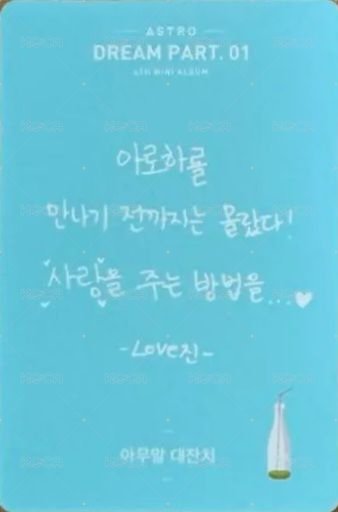 ASTRO
DREAM PART. 01
4TH MINI ALBUM
아로하를
만나기 전까지는 몰랐다!
사랑을 주는 방법을...♥
-Love진-
아무말 대잔치